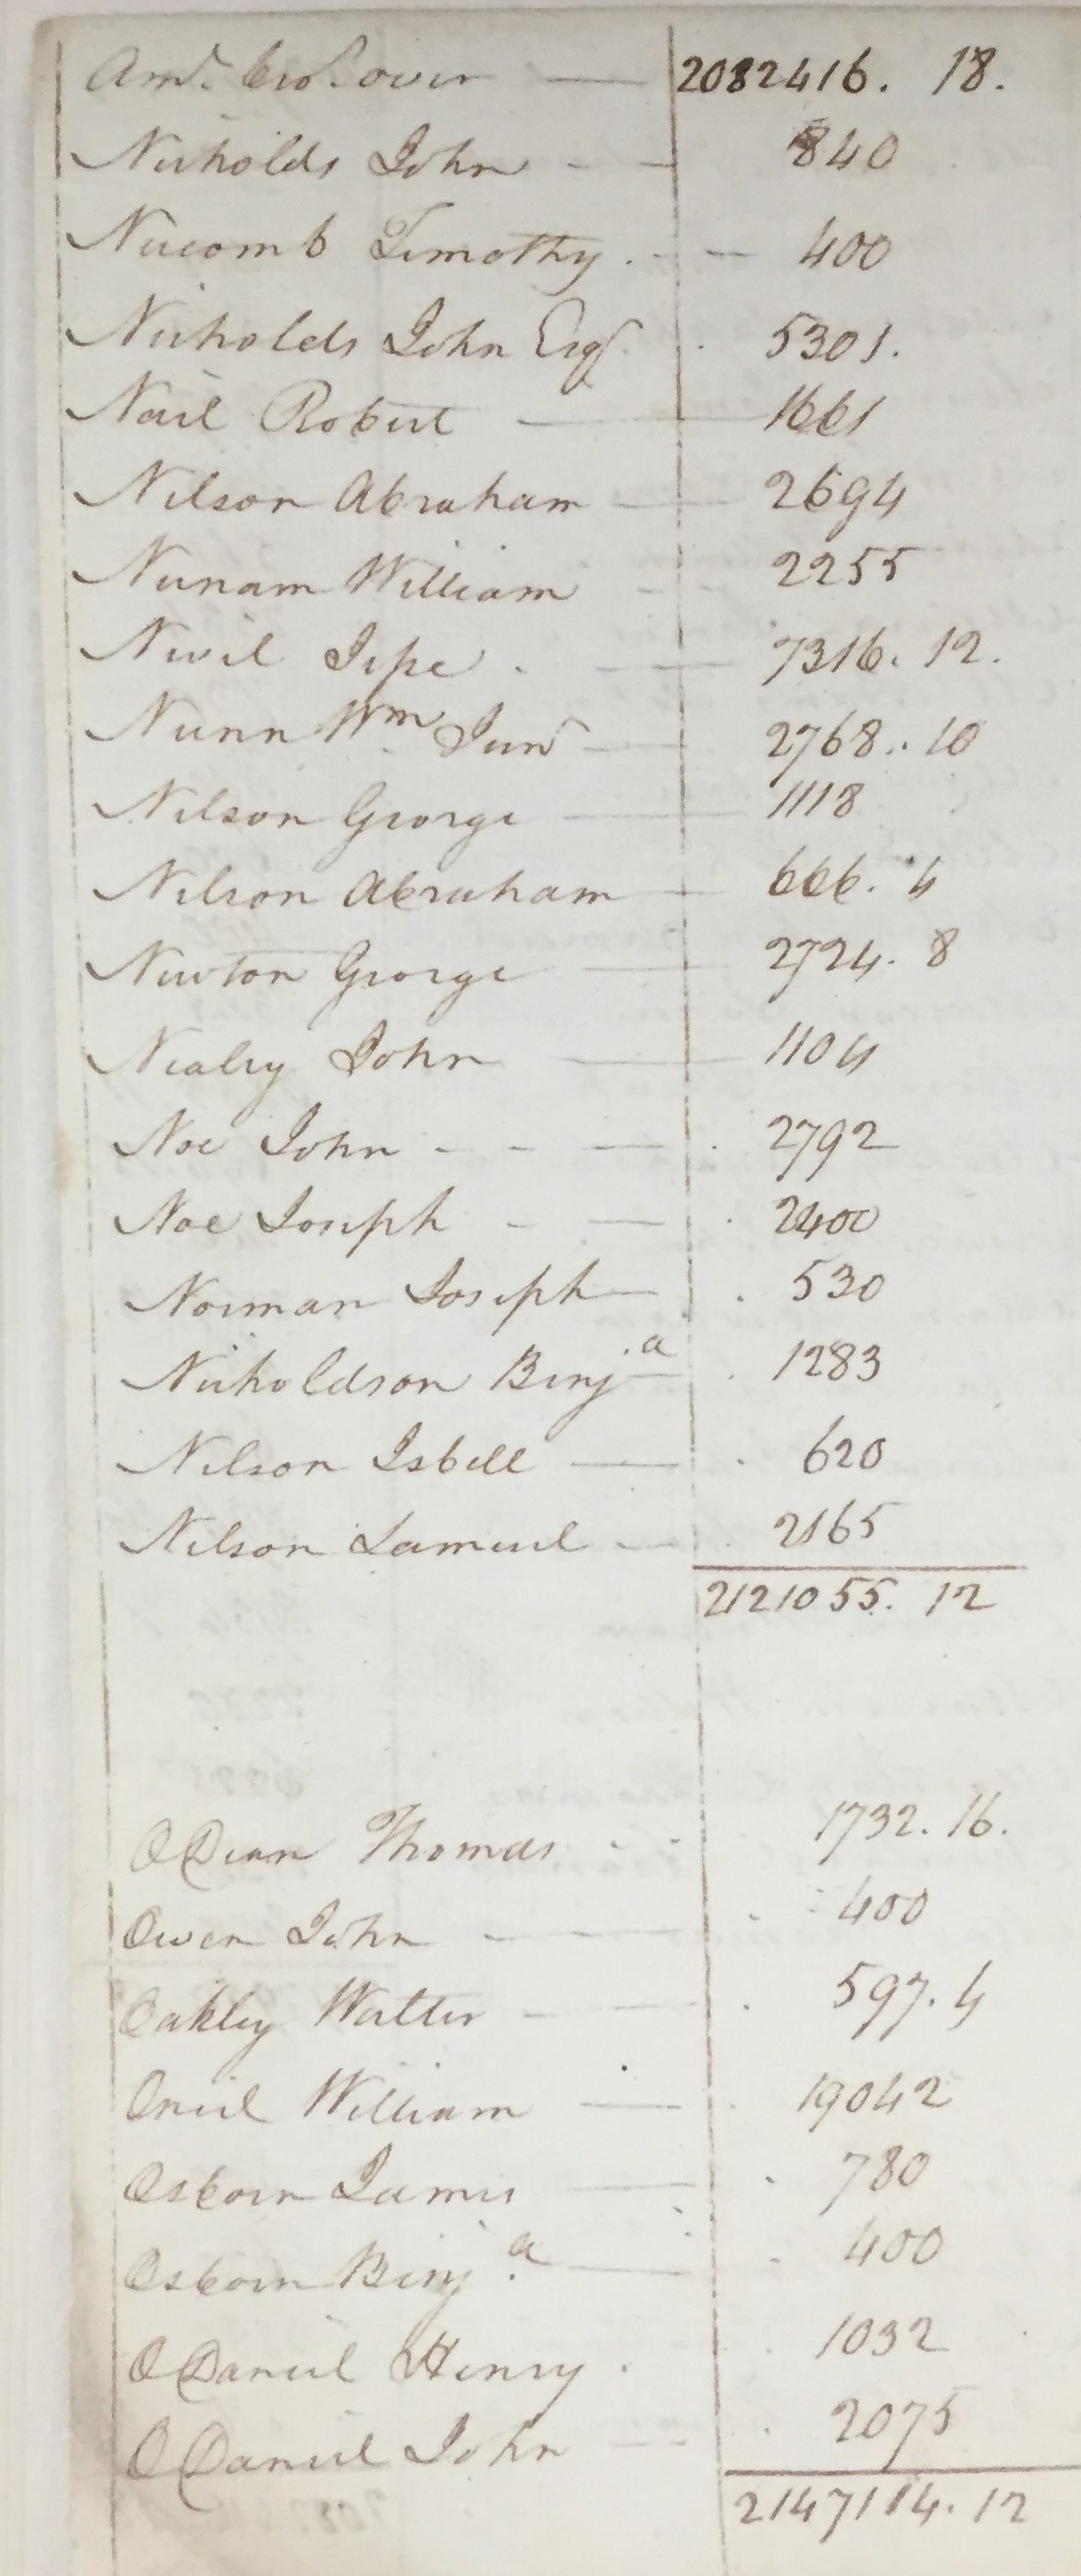 Amt. bro.t over — 2082416. 18.
Nicholds John - - 840
Nucomb Timothy. - - 400
Nicholds John Esqr. . 5301.
Nail Robert — 1661
Nelson Abraham — 2694
Nunam William - - 2255
Nevil Jesse . — 7316. 12.
Nunn Wm Junr — 2768.. 10
Nelson George — 1118
Nelson Abraham — 666. 4
Newton George — 2724. 8
Nealey John — 1104
Noe John - - — . 2792
Noe Joseph - — . 2400
Norman Joseph — . 530
Nicholdson Benja . 1283
Nelson Isbell — . 620
Nelson Samuel - . 2165
2121055. 12
ODean Thomas . . 1732. 16.
Owen John - — . 400
Oakley Walter - — . 597. 4
Oneil William — . 19042
Osborn James — . 780
Osborn Benj.a — . 400
ODaniel Henry . . 1032
ODaniel John - - . 2075
2147114. 12